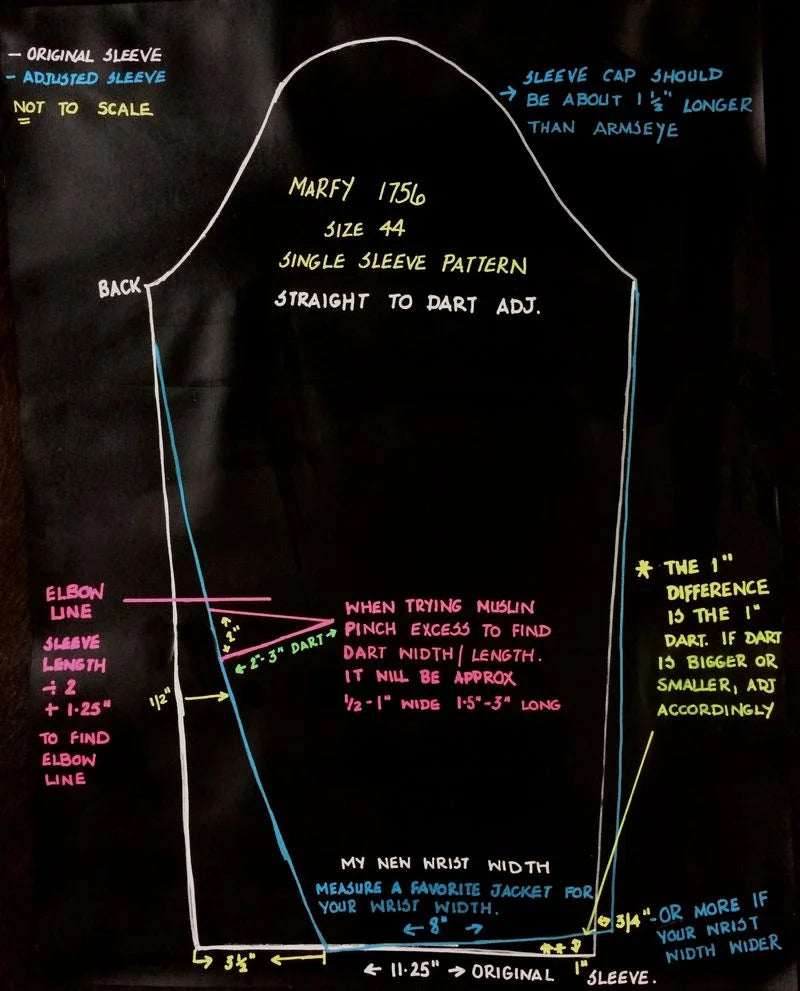 - ORIGINAL SLEEVE
- ADJUSTED SLEEVE
NOT TO SCALE
SLEEVE CAP SHOULD
BE ABOUT 1 ½" LONGER
THAN ARMSEYE
MARFY 1756
SIZE 44
SINGLE SLEEVE PATTERN
STRAIGHT TO DART ADJ.
BACK
ELBOW
LINE
SLEEVE
LENGTH
÷ 2
+ 1.25"
TO FIND
ELBOW
LINE
1"
2"-3" DART
1/2"
WHEN TRYING MUSLIN
PINCH EXCESS TO FIND
DART WIDTH/LENGTH.
IT WILL BE APPROX
½-1" WIDE 1.5"-3" LONG
* THE 1"
DIFFERENCE
IS THE 1"
DART. IF DART
IS BIGGER OR
SMALLER, ADJ
ACCORDINGLY
MY NEW WRIST WIDTH
MEASURE A FAVORITE JACKET FOR
YOUR WRIST WIDTH.
8"
3/4" - OR MORE IF
YOUR WRIST
WIDTH WIDER
**
3½"
11.25" ORIGINAL SLEEVE.
1"